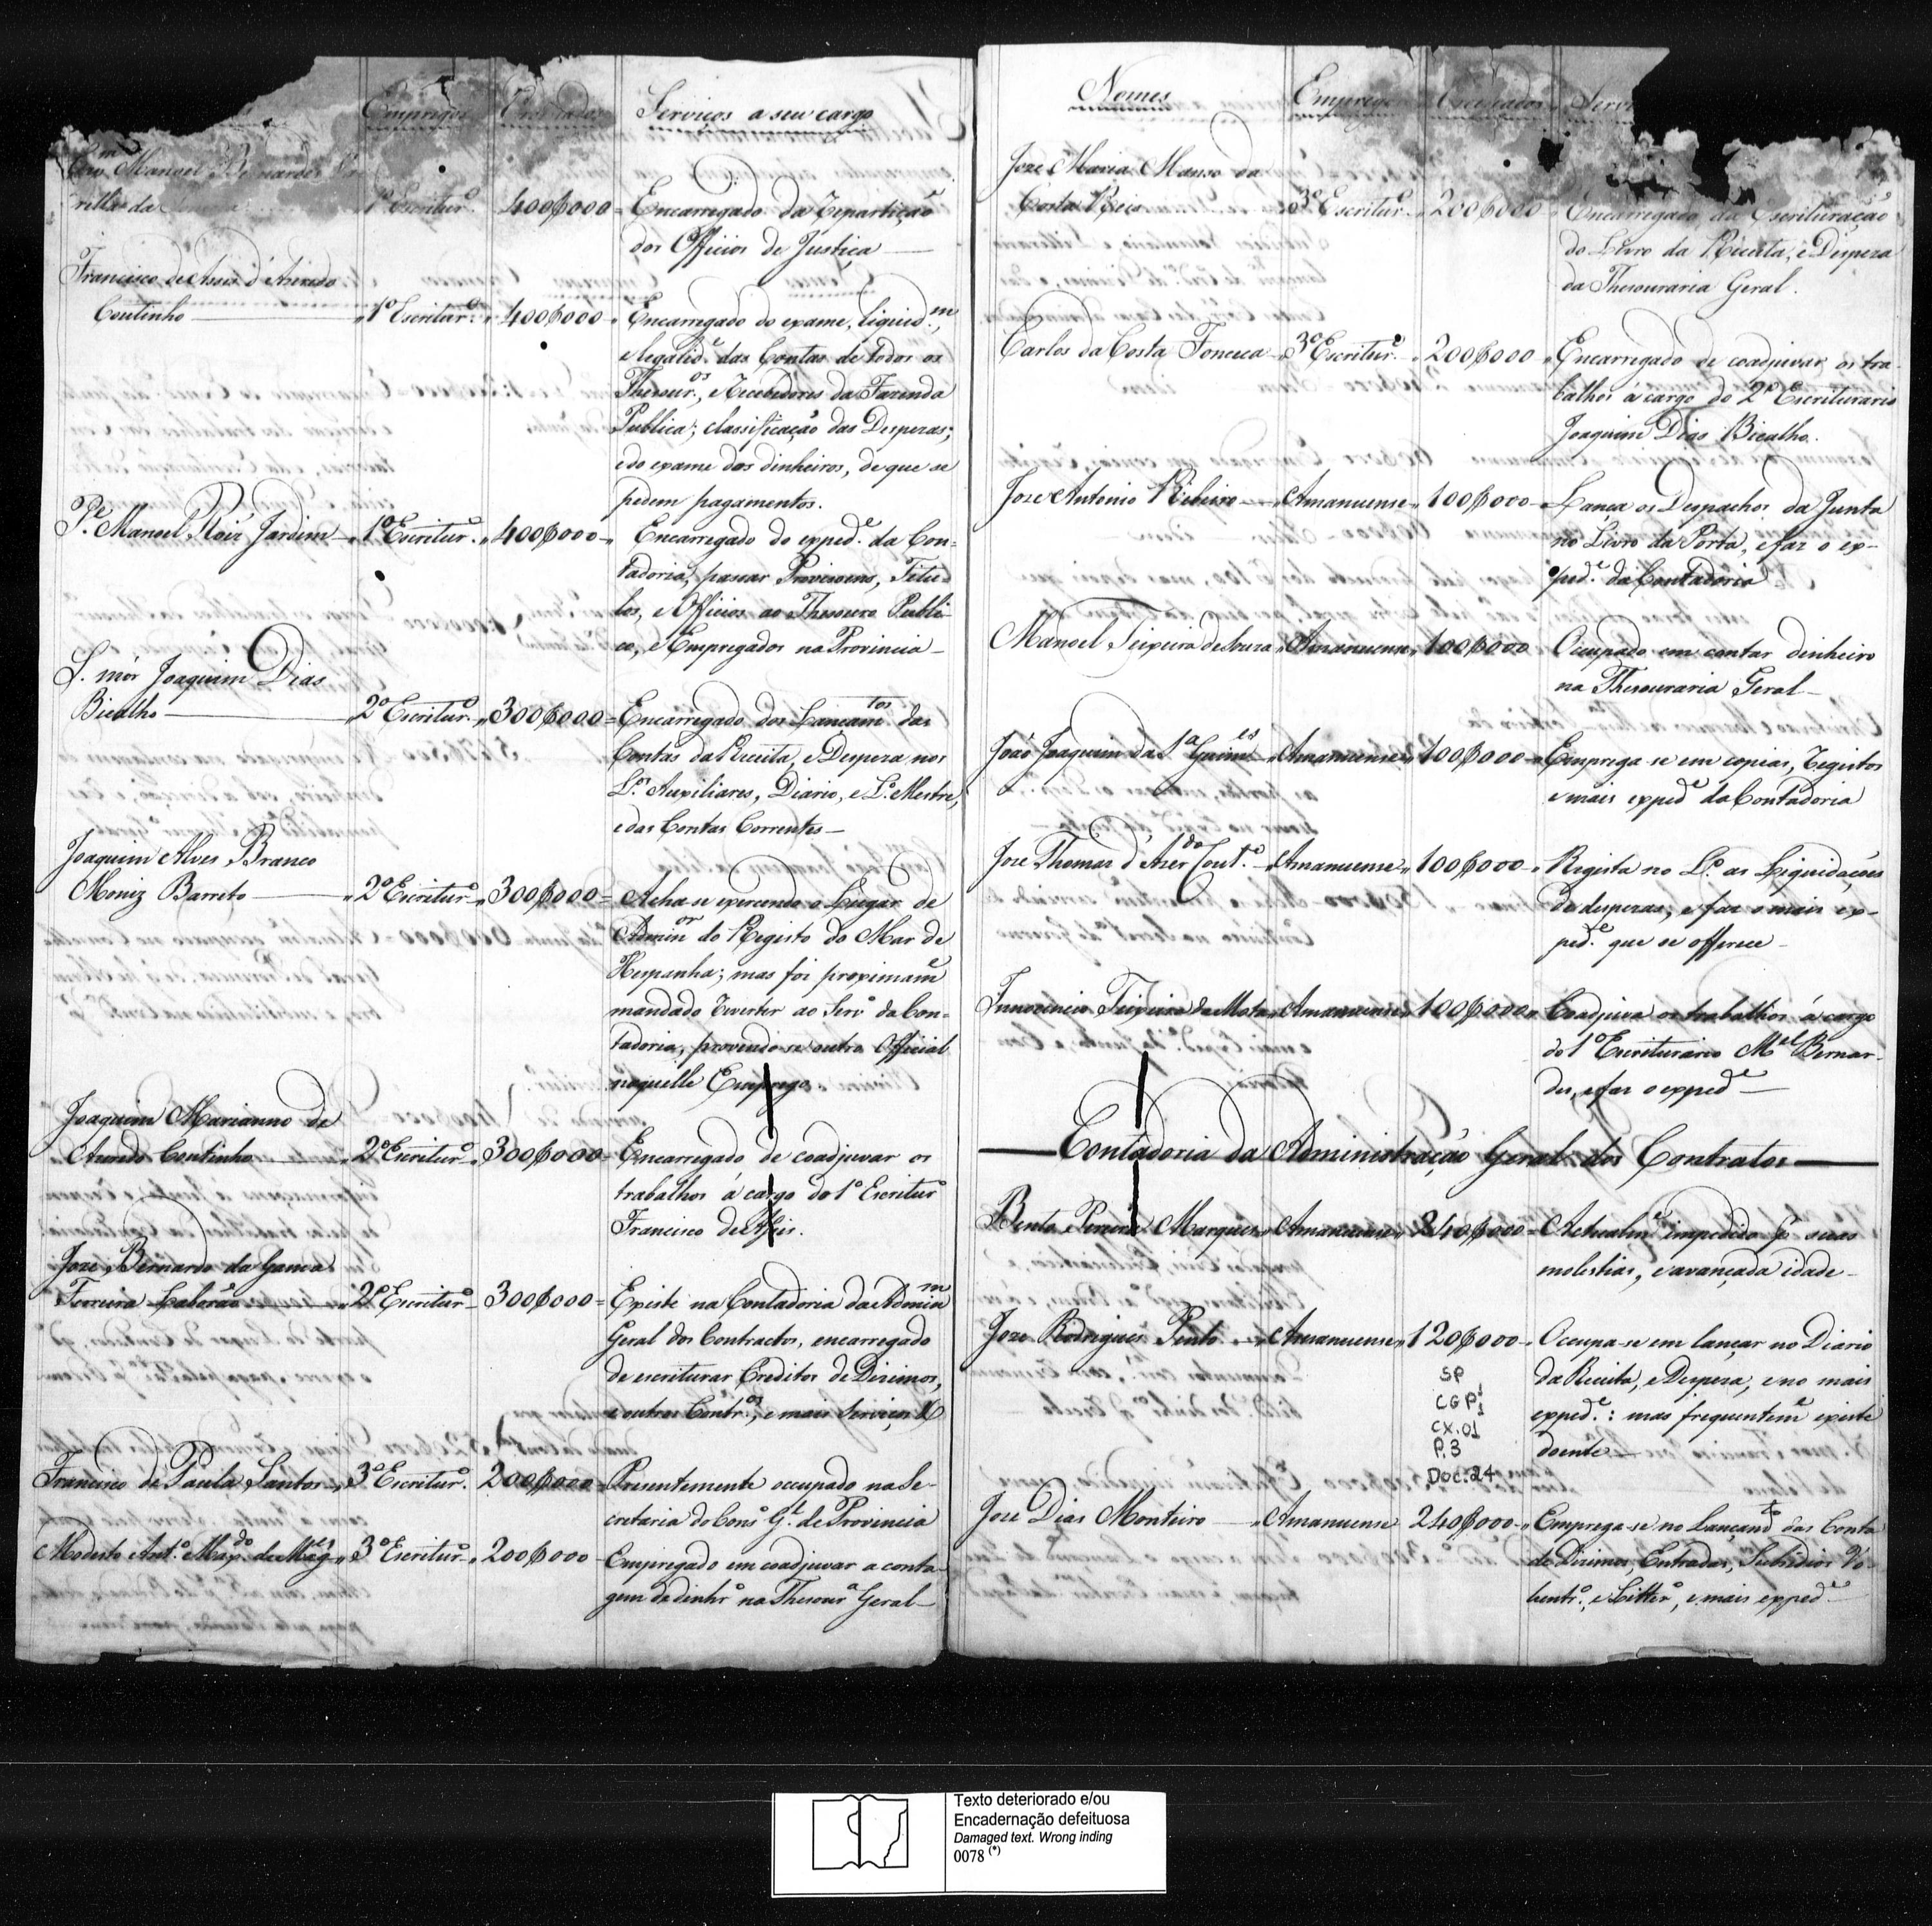 Empregos Ordenados Serviços a seu cargo
Manoel Bernardes
1º Escriturº 400$000 Encarregado da Repartição
dos Officios de Justiça
Francisco de Assis d'Azeredo
Coutinho 1º Escriturº 400$000 Encarregado do exame, liquidm,
e legalide das Contas de todos os
Thesouros, e Recebedores da Fazenda
Publica; classificação das Despezas;
e do exame dos dinheiros, de que se
pedem pagamentos.
Pe Manoel Roiz Jardim 1º Escriturº 400$000 Encarregado do expede da Con-
tadoria, passar Provisoens, Titu-
los, e Officios ao Thesouro Publi-
co, e Empregados na Provincia
S. mór Joaquim Dias
Bicalho 2º Escriturº 300$000 Encarregado dos Lançamtos das
Contas da Receita, e Despeza nos
Los Auxiliares, Diario, e Lº Mestre,
e das Contas Correntes
Joaquim Alves Branco
Moniz Barreto 2º Escriturº 300$000 Acha-se exercendo o Lugar de
Adminor do Registo do Mar de
Hespanha; mas foi proximame
mandado reverter ao Servº da Con-
tadoria, provendo-se outro Official
naquelle Emprego.
Joaquim Marianno de
Azeredo Coutinho 2º Escriturº 300$000 Encarregado de coadjuvar os
trabalhos á cargo do 1º Escriturº
Francisco de Assis.
Joze Bernardo da Gama
Ferreira 2º Escriturº 300$000 Existe na Contadoria da Adminm
Geral dos Contractos, encarregado
de escriturar Creditos de Dizimos,
e outros Contros, e mais serviços
Francisco de Paula Santos 3º Escriturº 200$000 Presentemente occupado na Se-
cretaria do Consº Gl de Provincia
Modesto Antº 3º Escriturº 200$000 Empregado em coadjuvar a conta-
gem de dinhrº na Thesoura Geral
Nomes Empregos Ordenados Servi
Joze Maria Manso da
Costa Reis 3º Escriturº 200$000 Encarregado da Escrituração
do Livro da Receita, e Despeza
da Thesouraria Geral.
Carlos da Costa Fonceca 3º Escriturº 200$000 Encarregado de coadjuvar os tra-
balhos á cargo do 2º Escriturario
Joaquim Dias Bicalho.
Joze Antonio Ribeiro Amanuense 100$000 Lança os Despachos da Junta
no Livro da Porta, e faz o ex-
pede da Contadoria
Manoel Teixeira de Souza Amanuense 100$000 Occupado em contar dinheiro
na Thesouraria Geral
João Joaquim da Sa Guimes Amanuense 100$000 Emprega-se em copias, Registos
e mais expede da Contadoria
Joze Thomas d'Azerdo Coutº Amanuense 100$000 Registra no Lº as Liquidações
de despezas, e faz o mais ex-
pede que se offerece
Innocencio Teixeira da Mota Amanuense 100$000 Coadjuva os trabalhos á cargo
do 1º Escriturario Mel Bernar-
des, e faz o expede
Contadoria da Administração Geral dos Contratos
Bento Pereira Marques Amanuense 240$000 Actualme impedido suas
molestias, e avançada idade
Joze Rodrigues Pinto Amanuense 120$000 Occupa-se em lançar no Diario
da Receita, e Despeza, e no mais
expede: mas frequenteme existe
doente
SP
CGP1
CX.01
P.3
Doc.24
Joze Dias Monteiro Amanuense 240$000 Emprega-se no Lançamto das Contas
de Dizimos, Entradas, Subsidios Vo-
luntrº, e Litterº, e mais expede
Texto deteriorado e/ou
Encadernação defeituosa
Damaged text. Wrong inding
0078 (*)